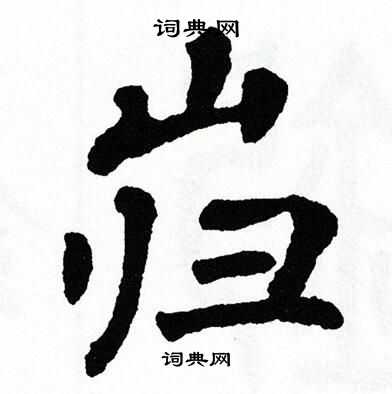 词典网
岿
词典网